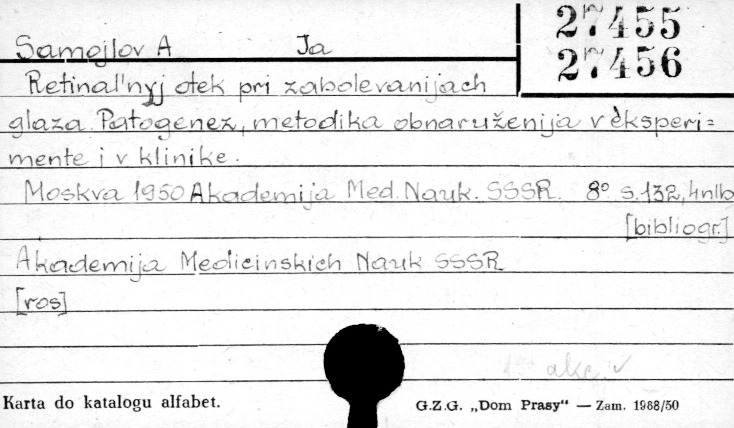 27455
27456
Samojlov A Ja
Retinal'nyj otek pri zabolevanijach
glaza. Patogenez, metodika obnaruženija v èksperi=
mente i v klinike.
Moskva 1950 Akademija Med. Nauk. SSSR. 8° s. 132, 4nlb
[bibliogr.]
Akademija Medicinskich Nauk SSSR
[ros]
akc. ✓
Karta do katalogu alfabet.
G.Z.G. „Dom Prasy“ — Zam. 1968/50